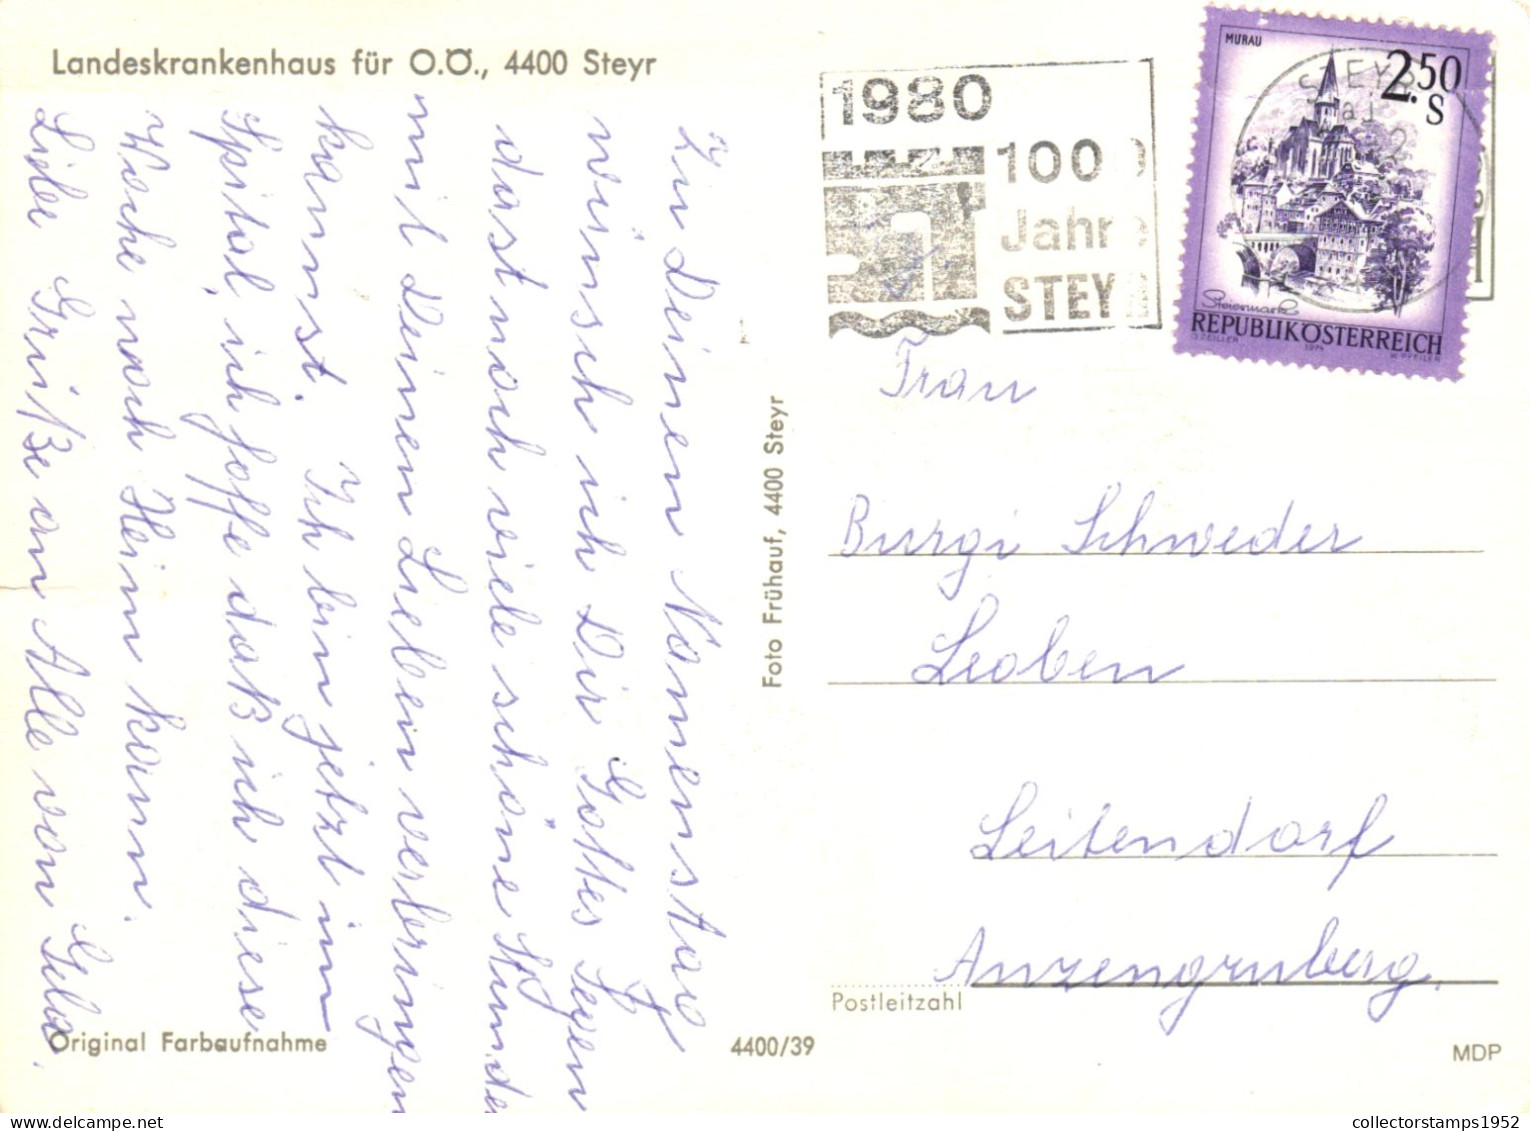 Landeskrankenhaus für O.Ö., 4400 Steyr
Zu Deinem Namenstag
wünsch ich Dir Gottes Segen
dast noch viele schöne Stunden
mit Deinen Lieben verbringen
kannst. Ich bin jetzt im
Spital, ich hoffe daß ich diese
Woche noch Heim kann.
Liebe Grüße an Alle von
Original Farbaufnahme
4400/39
Foto Frühauf, 4400 Steyr
1980
1000
Jahre
STEYR
MURAU
2.50
S
STEYR
Steiermark
REPUBLIK ÖSTERREICH
1974
Frau
Burgi Schweder
Leoben
Leitendorf
Anzengruberg.
Postleitzahl
MDP
collectorstamps1952